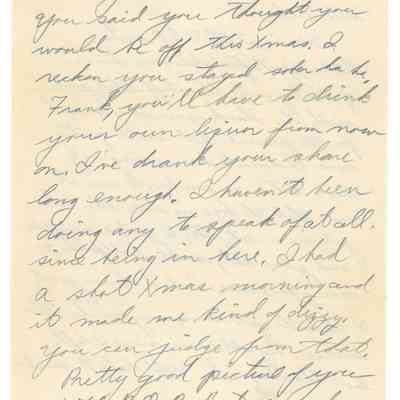 you said you thought you
would be off this Xmas. I
reckon you stayed sober ha ha.
Frank, you'll have to drink
your own liquor from now
on. I've drank your share
long enough. I haven't been
doing any to speak of at all.
since being in here. I had
a shot Xmas morning and
it made me kind of dizzy.
you can judge from that.
Pretty good picture of you